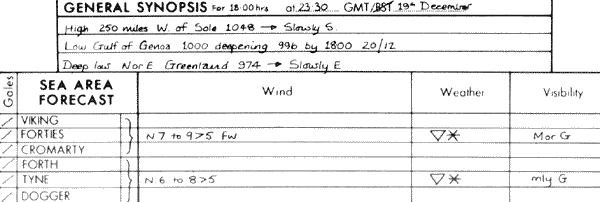 GENERAL SYNOPSIS For 18:00 hrs at 23:30 GMT/BST 19th December
High 250 miles W. of Sole 1048 → Slowly S.
Low Gulf of Genoa 1000 deepening 996 by 1800 20/12
Deep low Nor E Greenland 974 → Slowly E
Gales SEA AREA FORECAST Wind Weather Visibility
VIKING
FORTIES N 7 to 9 > 5 FW ▽* Mor G
CROMARTY
FORTH
TYNE N 6 to 8 > 5 ▽* mly G
DOGGER